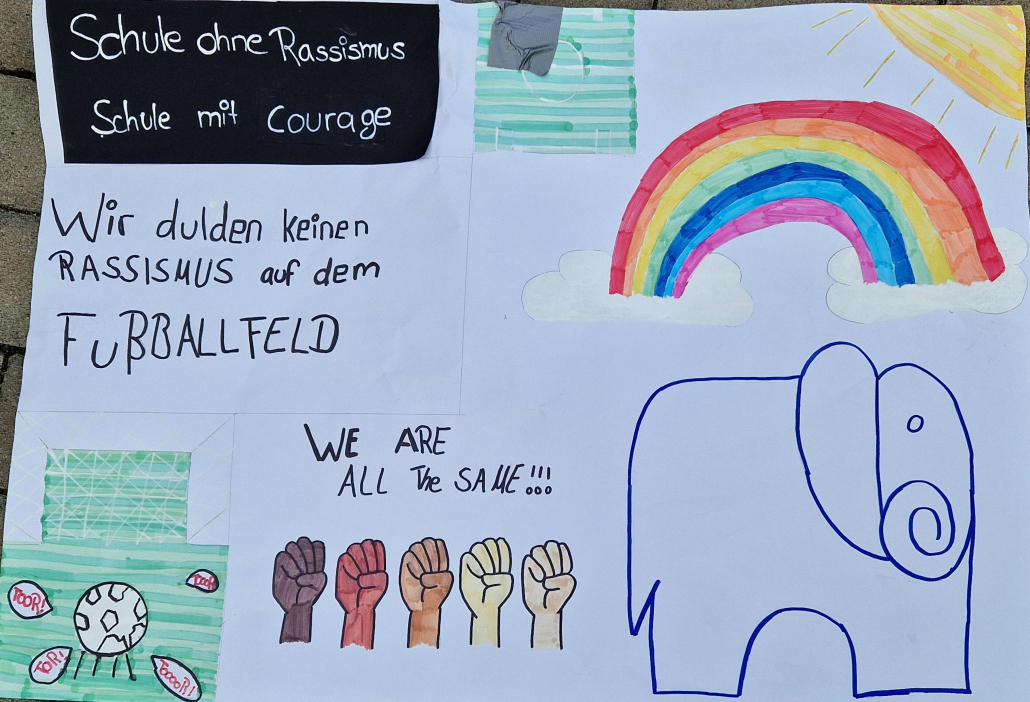 Schule ohne Rassismus
Schule mit Courage
Wir dulden keinen
RASSISMUS auf dem
FUßBALLFELD
WE ARE
ALL The SAME!!!
TOOR!
TOOR
TOR!
TOOOOR!